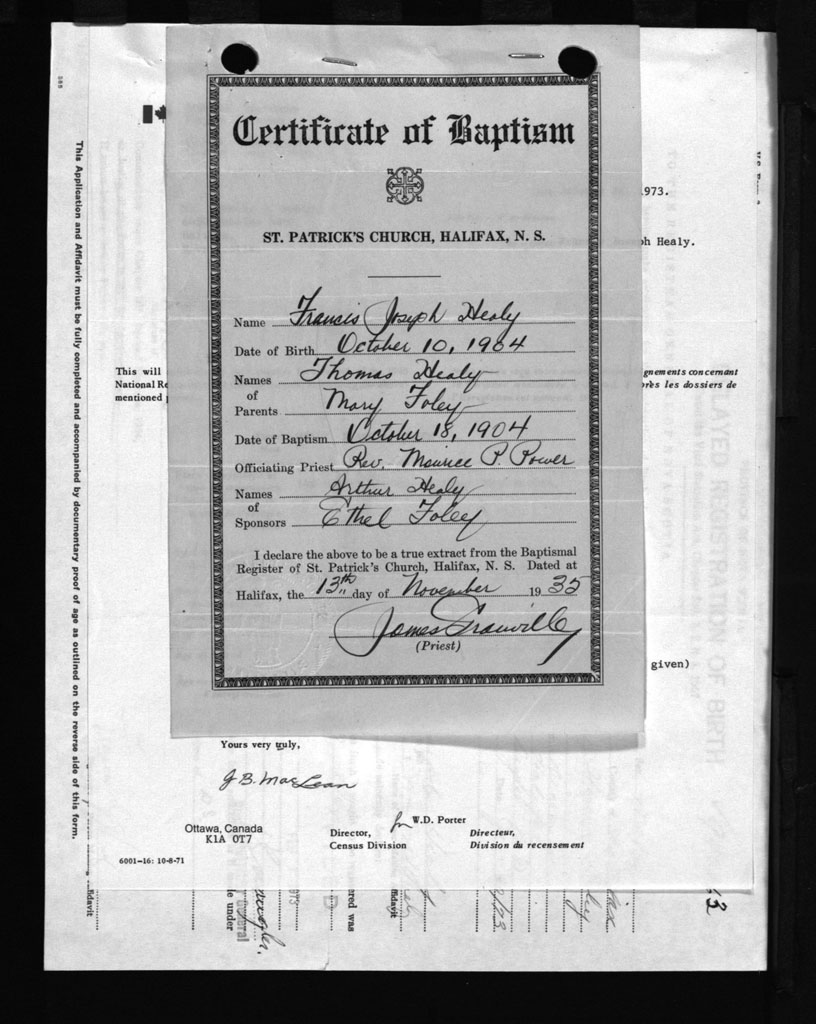 Certificate of Baptism
ST. PATRICK'S CHURCH, HALIFAX, N. S.
Name Francis Joseph Healy
Date of Birth October 10, 1904
Names Thomas Healy
of
Parents Mary Foley
Date of Baptism October 18, 1904
Officiating Priest Rev. Maurice P. Power
Names Arthur Healy
of
Sponsors Ethel Foley
I declare the above to be a true extract from the Baptismal
Register of St. Patrick's Church, Halifax, N. S. Dated at
Halifax, the 13th day of November 1935
James Granville
(Priest)
1973.
h Healy.
This will
National Re
mentioned
gnements concernant
près les dossiers de
given)
Yours very truly,
J B. MacLean
for W.D. Porter
Ottawa, Canada
K1A 0T7
Director,
Census Division
Directeur,
Division du recensement
6001-16: 10-8-71
This Application and Affidavit must be fully completed and accompanied by documentary proof of age as outlined on the reverse side of this form.
LAYED REGISTRATION OF BIRTH
ffidavit
le under
General
1973
ered was